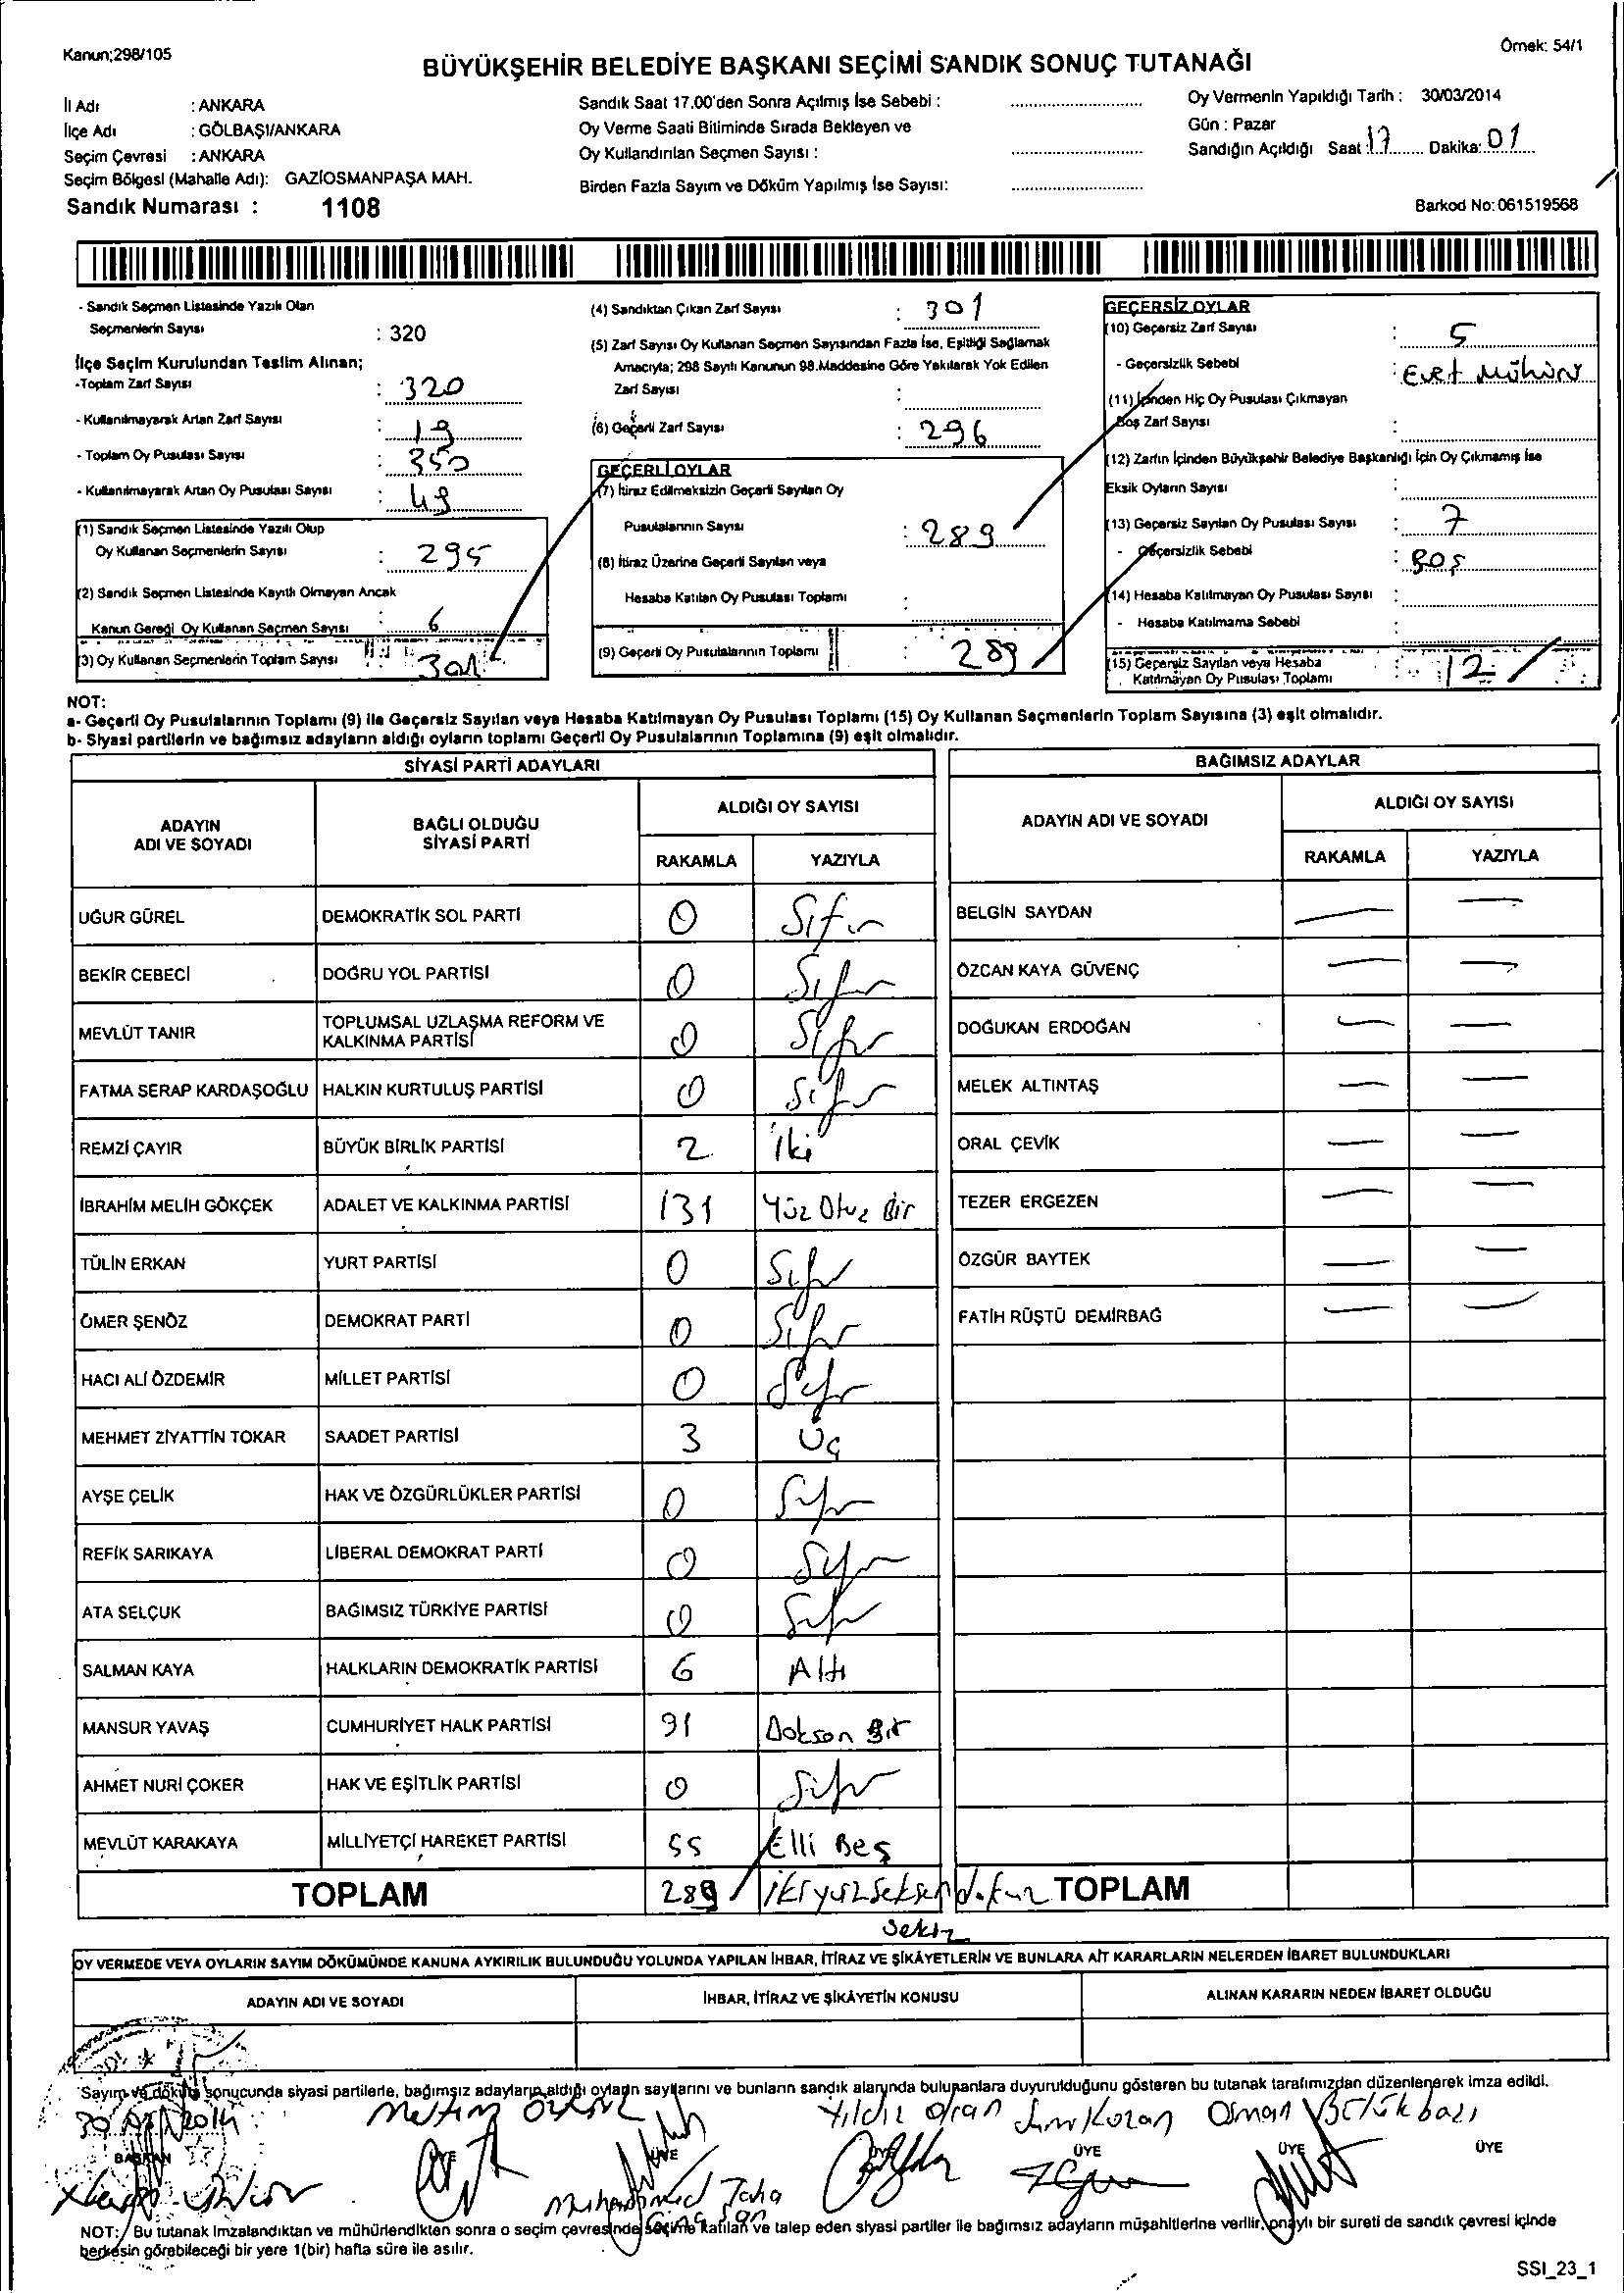 Kanun;298/105
Örnek: 54/1
BÜYÜKŞEHİR BELEDİYE BAŞKANI SEÇİMİ SANDIK SONUÇ TUTANAĞI
İl Adı : ANKARA
İlçe Adı : GÖLBAŞI/ANKARA
Seçim Çevresi : ANKARA
Seçim Bölgesi (Mahalle Adı): GAZİOSMANPAŞA MAH.
Sandık Numarası : 1108
Sandık Saat 17.00'den Sonra Açılmış İse Sebebi :
Oy Verme Saati Bitiminde Sırada Bekleyen ve
Oy Kullandırılan Seçmen Sayısı :
Birden Fazla Sayım ve Döküm Yapılmış İse Sayısı:
Oy Vermenin Yapıldığı Tarih : 30/03/2014
Gün : Pazar
Sandığın Açıldığı Saat: 17 Dakika: 01
Barkod No: 061519568
- Sandık Seçmen Listesinde Yazılı Olan
Seçmenlerin Sayısı : 320
İlçe Seçim Kurulundan Teslim Alınan;
-Toplam Zarf Sayısı : 320
- Kullanılmayarak Artan Zarf Sayısı : 19
- Toplam Oy Pusulası Sayısı : 350
- Kullanılmayarak Artan Oy Pusulası Sayısı : 49
(1) Sandık Seçmen Listesinde Yazılı Olup
Oy Kullanan Seçmenlerin Sayısı : 295
(2) Sandık Seçmen Listesinde Kayıtlı Olmayan Ancak
Kanun Gereği Oy Kullanan Seçmen Sayısı : 6
(3) Oy Kullanan Seçmenlerin Toplam Sayısı : 301
(4) Sandıktan Çıkan Zarf Sayısı : 301
(5) Zarf Sayısı Oy Kullanan Seçmen Sayısından Fazla İse, Eşitliği Sağlamak
Amacıyla; 298 Sayılı Kanunun 98.Maddesine Göre Yakılarak Yok Edilen
Zarf Sayısı :
(6) Geçerli Zarf Sayısı : 296
GEÇERLİ OYLAR
(7) İtiraz Edilmeksizin Geçerli Sayılan Oy
Pusulalarının Sayısı : 289
(8) İtiraz Üzerine Geçerli Sayılan veya
Hesaba Katılan Oy Pusulası Toplamı :
(9) Geçerli Oy Pusulalarının Toplamı : 289
GEÇERSİZ OYLAR
(10) Geçersiz Zarf Sayısı : 5
- Geçersizlik Sebebi : Evet Mühürü
(11) İçinden Hiç Oy Pusulası Çıkmayan
Boş Zarf Sayısı :
(12) Zarfın İçinden Büyükşehir Belediye Başkanlığı İçin Oy Çıkmamış İse
Eksik Oyların Sayısı :
(13) Geçersiz Sayılan Oy Pusulası Sayısı : 7
- Geçersizlik Sebebi : Boş
(14) Hesaba Katılmayan Oy Pusulası Sayısı :
- Hesaba Katılmama Sebebi :
(15) Geçersiz Sayılan veya Hesaba
Katılmayan Oy Pusulası Toplamı : 12
NOT:
a- Geçerli Oy Pusulalarının Toplamı (9) ile Geçersiz Sayılan veya Hesaba Katılmayan Oy Pusulası Toplamı (15) Oy Kullanan Seçmenlerin Toplam Sayısına (3) eşit olmalıdır.
b- Siyasi partilerin ve bağımsız adayların aldığı oyların toplamı Geçerli Oy Pusulalarının Toplamına (9) eşit olmalıdır.
SİYASİ PARTİ ADAYLARI
ADAYIN ADI VE SOYADI
BAĞLI OLDUĞU SİYASİ PARTİ
ALDIĞI OY SAYISI
RAKAMLA YAZIYLA
UĞUR GÜREL DEMOKRATİK SOL PARTİ 0 Sıfır
BEKİR CEBECİ DOĞRU YOL PARTİSİ 0 Sıfır
MEVLÜT TANIR TOPLUMSAL UZLAŞMA REFORM VE KALKINMA PARTİSİ 0 Sıfır
FATMA SERAP KARDAŞOĞLU HALKIN KURTULUŞ PARTİSİ 0 Sıfır
REMZİ ÇAYIR BÜYÜK BİRLİK PARTİSİ 2 İki
İBRAHİM MELİH GÖKÇEK ADALET VE KALKINMA PARTİSİ 131 Yüz Otuz Bir
TÜLİN ERKAN YURT PARTİSİ 0 Sıfır
ÖMER ŞENÖZ DEMOKRAT PARTİ 0 Sıfır
HACI ALİ ÖZDEMİR MİLLET PARTİSİ 0 Sıfır
MEHMET ZİYATTİN TOKAR SAADET PARTİSİ 3 Üç
AYŞE ÇELİK HAK VE ÖZGÜRLÜKLER PARTİSİ 0 Sıfır
REFİK SARIKAYA LİBERAL DEMOKRAT PARTİ 0 Sıfır
ATA SELÇUK BAĞIMSIZ TÜRKİYE PARTİSİ 0 Sıfır
SALMAN KAYA HALKLARIN DEMOKRATİK PARTİSİ 6 Altı
MANSUR YAVAŞ CUMHURİYET HALK PARTİSİ 91 Doksan Bir
AHMET NURİ ÇOKER HAK VE EŞİTLİK PARTİSİ 0 Sıfır
MEVLÜT KARAKAYA MİLLİYETÇİ HAREKET PARTİSİ 55 Elli Beş
TOPLAM 289 İkiyüzseksendokuz
Sekiz
BAĞIMSIZ ADAYLAR
ADAYIN ADI VE SOYADI
ALDIĞI OY SAYISI
RAKAMLA YAZIYLA
BELGİN SAYDAN — —
ÖZCAN KAYA GÜVENÇ — —
DOĞUKAN ERDOĞAN — —
MELEK ALTINTAŞ — —
ORAL ÇEVİK — —
TEZER ERGEZEN — —
ÖZGÜR BAYTEK — —
FATİH RÜŞTÜ DEMİRBAĞ — —
TOPLAM
OY VERMEDE VEYA OYLARIN SAYIM DÖKÜMÜNDE KANUNA AYKIRILIK BULUNDUĞU YOLUNDA YAPILAN İHBAR, İTİRAZ VE ŞİKÂYETLERİN VE BUNLARA AİT KARARLARIN NELERDEN İBARET BULUNDUKLARI
ADAYIN ADI VE SOYADI
İHBAR, İTİRAZ VE ŞİKÂYETİN KONUSU
ALINAN KARARIN NEDEN İBARET OLDUĞU
Sayım ve döküm sonucunda siyasi partilerle, bağımsız adayların aldığı oyların sayılarını ve bunların sandık alanında bulunanlara duyurulduğunu gösteren bu tutanak tarafımızdan düzenlenerek imza edildi.
30/03/2014
Yıldız
Osman
BAŞKAN ÜYE ÜYE ÜYE ÜYE ÜYE ÜYE
Muhammed Taha
NOT: Bu tutanak imzalandıktan ve mühürlendikten sonra o seçim çevresinde seçime katılan ve talep eden siyasi partiler ile bağımsız adayların müşahitlerine verilir, onaylı bir sureti de sandık çevresi içinde
herkesin görebileceği bir yere 1(bir) hafta süre ile asılır.
SSI_23_1